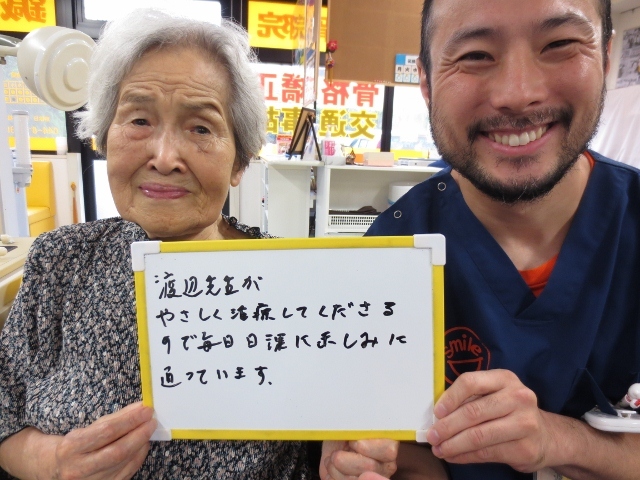 骨格矯正
交通事故
渡辺先生が
やさしく治療してくださる
ので毎日日課に楽しみに
通っています。
smile